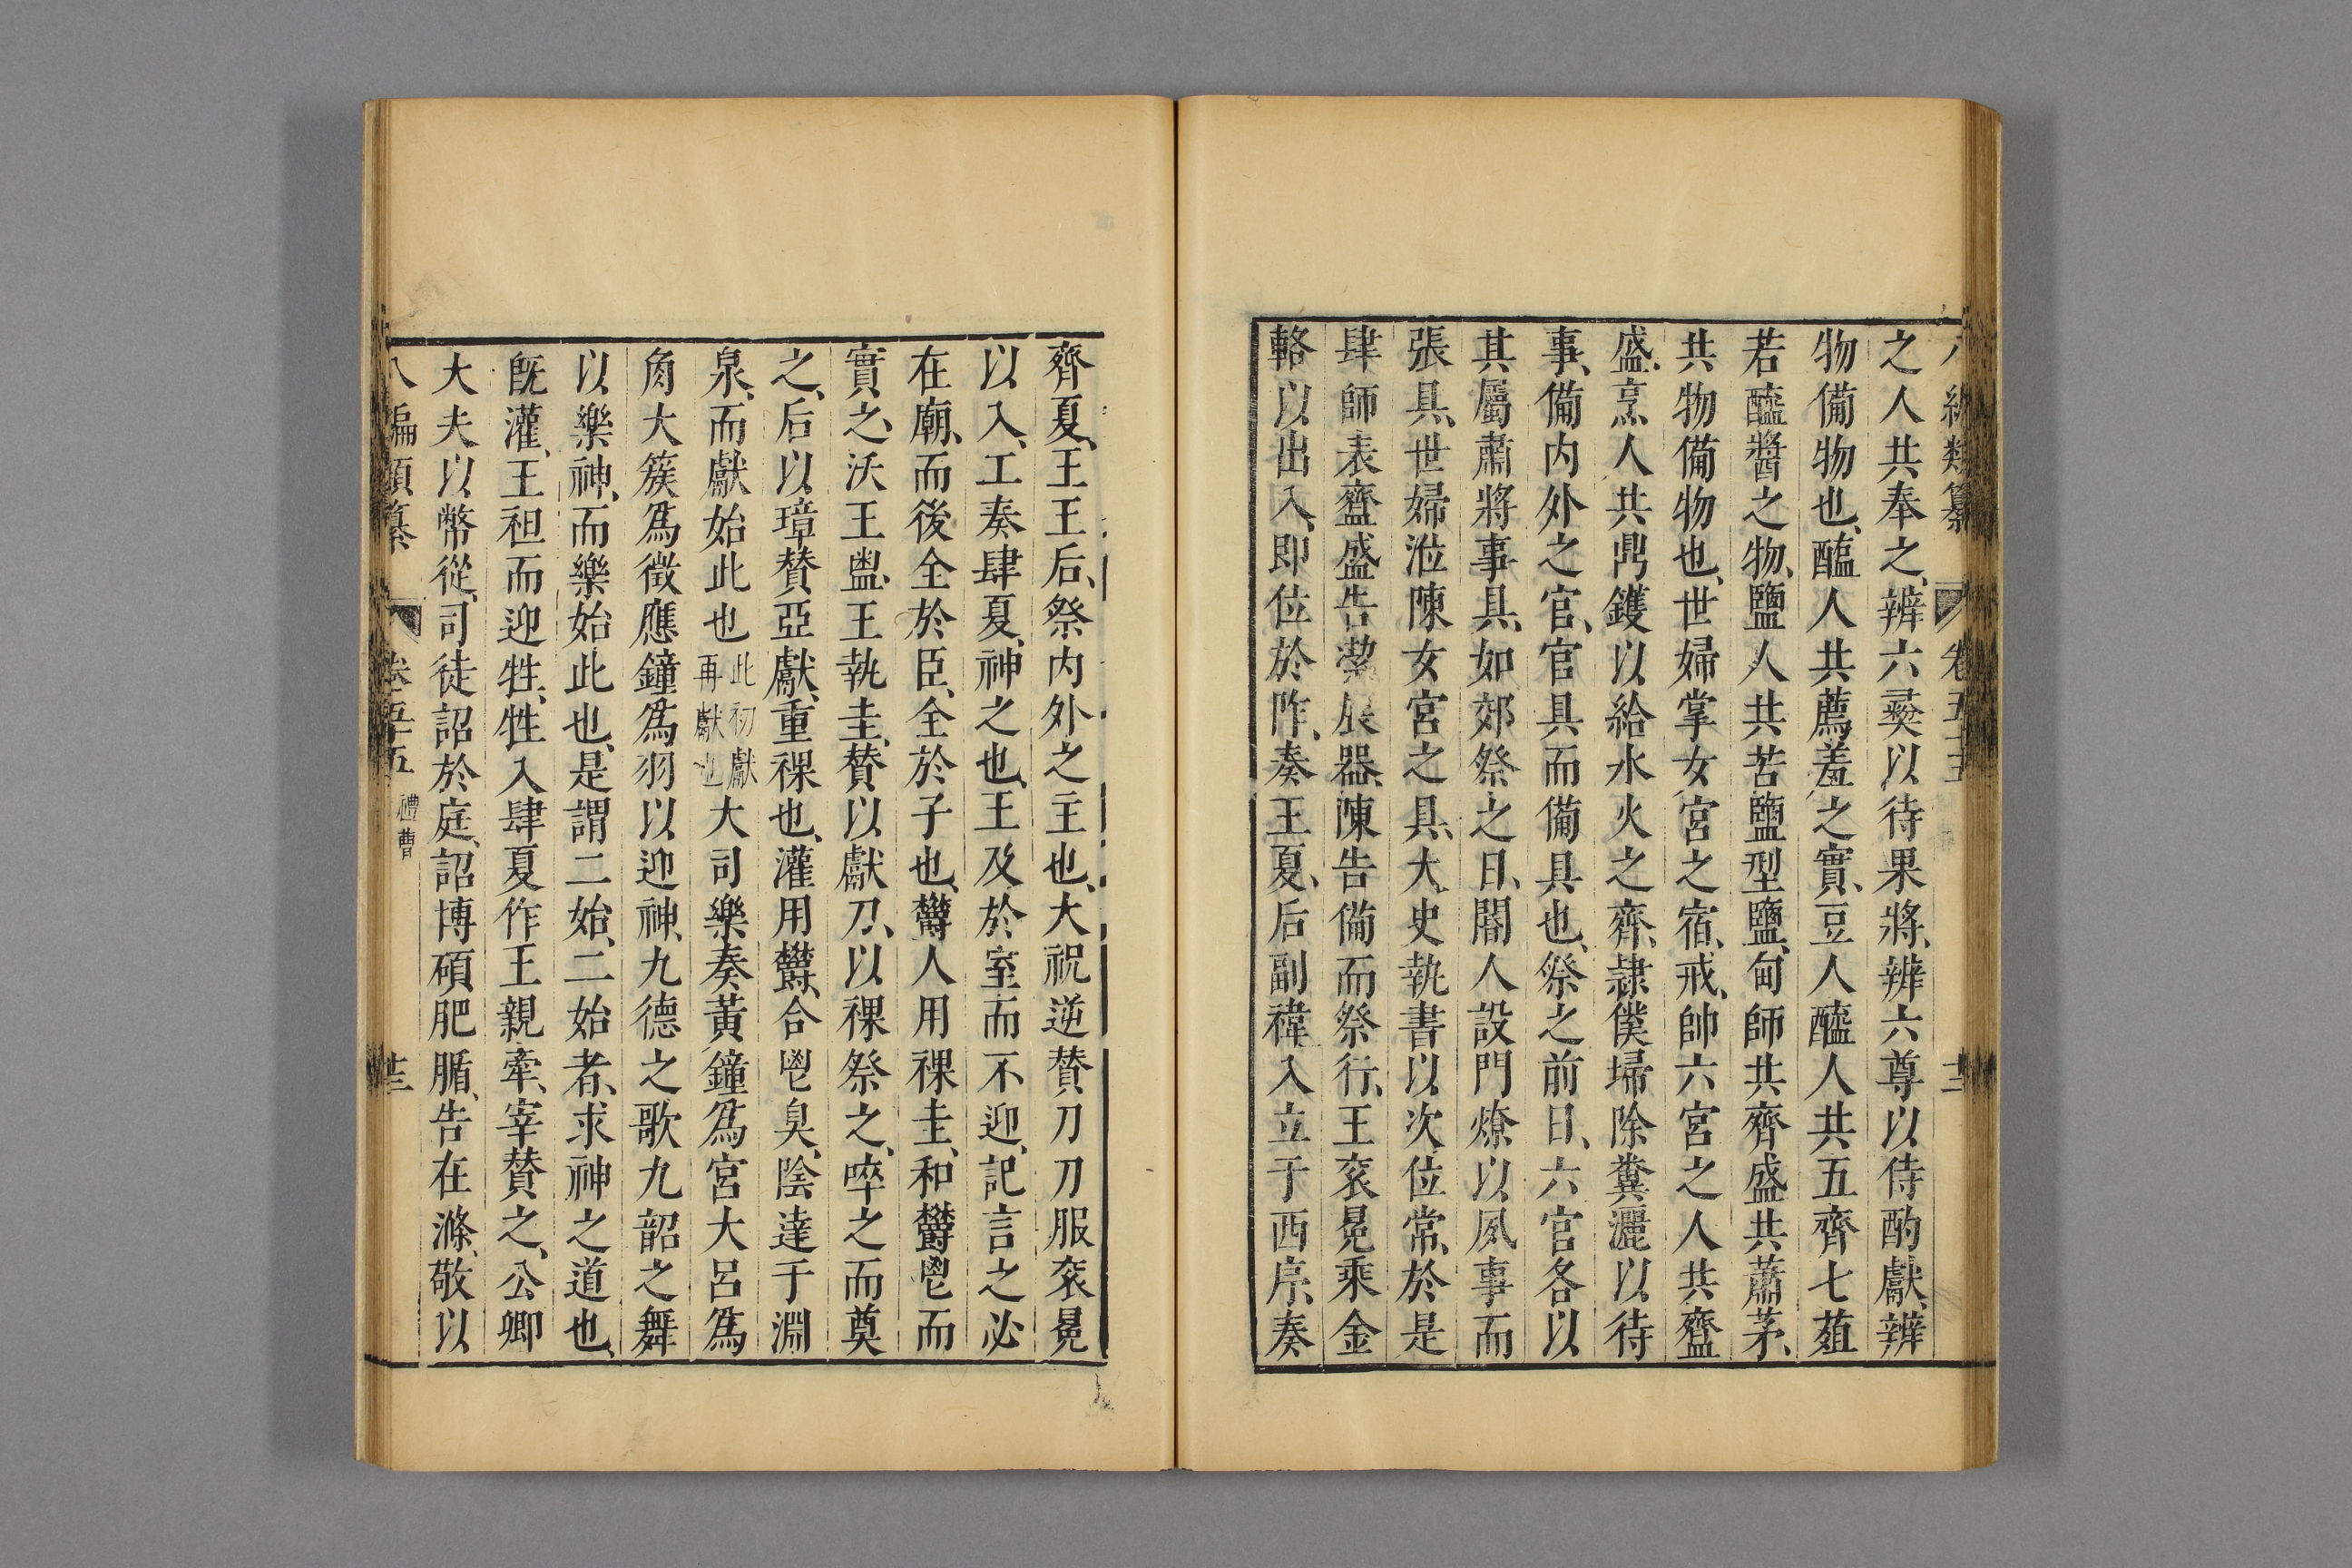 八編類纂 卷五十五 十二
之人共奉之、辨六彝以待果將、辨六尊以待酌獻、辨
物備物也、醢人共薦羞之實、豆人醯人共五齊七菹
若醯醬之物、鹽人共苦鹽型鹽、甸師共齊盛共蕭茅、
共物備物也、世婦掌女宮之宿、戒、帥六宮之人共齍
盛、烹人共鼎鑊以給水火之齊、隷僕埽除糞灑以待
事、備内外之官、官具而備具也、祭之前日、六官各以
其屬肅將事具、如郊祭之日、閽人設門燎以夙事而
張具、世婦涖陳女宮之具、大史執書以次位常、於是
肆師表齍盛告潔展器、陳告備而祭行、王衮冕乘金
輅以出入、即位於阼、奏王夏、后副褘入立于西序、奏
齊夏、王王后、祭内外之主也、大祝逆賛刀刀服衮冕
以入、工奏肆夏、神之也、王及於室而不迎、記言之必
在廟、而後全於臣、全於子也、鬱人用祼圭、和鬱鬯而
實之、沃王盥、王執圭、賛以獻刀、以祼祭之、啐之而奠
之、后以璋賛亞獻、重祼也、灌用鬱、合鬯臭、陰達于淵
泉、而獻始此也此初獻再獻也大司樂奏黃鐘爲宮大呂爲
角大簇爲徵應鐘爲羽以迎神、九德之歌九韶之舞
以樂神、而樂始此也、是謂二始、二始者、求神之道也、
既灌、王袒而迎牲、牲入肆夏作王親牽、宰賛之、公卿
大夫以幣從、司徒詔於庭、詔博碩肥腯、告在滌、敬以
八編類纂 卷五十五 禮曹 十三